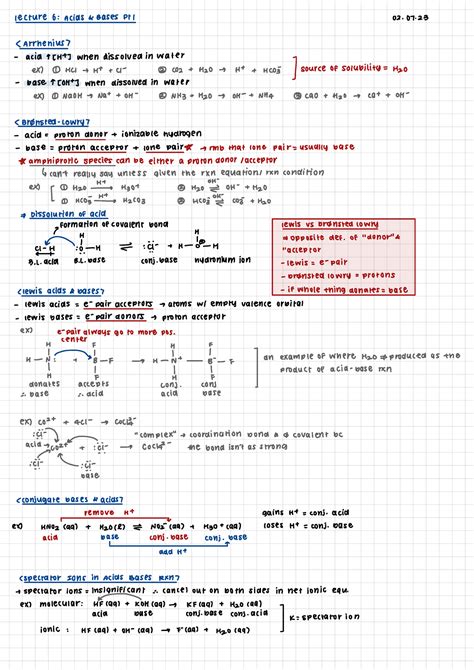 Lecture 6: Acids & Bases Pt1
02.07.23
<Arrhenius>
- acid ↑[H+] when dissolved in water
ex) ① HCl → H+ + Cl- ② CO2 + H2O → H+ + HCO3-
source of solubility = H2O
- base ↑[OH-] when dissolved in water
ex) ① NaOH → Na+ + OH- ② NH3 + H2O → OH- + NH4 ③ CaO + H2O → Ca2+ + OH-
<Brønsted-Lowry>
- acid = proton donor + ionizable hydrogen
- base = proton acceptor + lone pair★ → rmb that lone pair = usually base
★ amphiprotic species can be either a proton donor/acceptor
↳ can't really say unless given the rxn equation/rxn condition
ex) ① H2O H+→ H3O+ ② H2O OH-→ OH- + H2O
③ HCO3- H+→ H2CO3 ④ HCO3- OH-→ CO3²- + H2O
* Dissolution of acid
formation of covalent bond
Cl-H + H-O-H ⇌ :Cl:- + H-O-H
B.L. acid B.L. base conj. base hydronium ion
Lewis vs Brønsted Lowry
* opposite def. of "donor" &
"acceptor"
- Lewis = e- pair
- Brønsted Lowry = protons
- if whole thing donates = base
<Lewis acids & bases>
- lewis acids = e- pair acceptors → atoms w/ empty valence orbital
- lewis bases = e- pair donors → proton acceptor
ex) e- pair always go to more pos.
center
H H-N: H + F B-F F → H H-N+ H - F B- F F
donates accepts conj. conj.
∴ base ∴ acid acid base
an example of where H2O ≠ produced as the
product of acid-base rxn
ex) Co2+ + 4Cl- → CoCl4²-
"complex" → coordination bond & ∅ covalent bc
CoCl4²- the bond isn't as strong
:Cl:- :Cl:-
acid → Co2+
:Cl:- :Cl:-
base
<Conjugate bases & acids>
remove H+
gains H+ = conj. acid
ex) HNO2 (aq) + H2O(l) ⇌ NO2- (aq) + H3O+ (aq)
loses H+ = conj. base
acid base conj. base conj. base
add H+
<Spectator Ions in Acids Bases Rxn>
→ spectator ions = insignificant ∴ cancel out on both sides in net ionic equ.
ex) molecular: HF (aq) + KOH (aq) → KF (aq) + H2O (aq)
acid base base acid
K = spectator ion
ionic : HF (aq) + OH- (aq) → F-(aq) + H2O (aq)